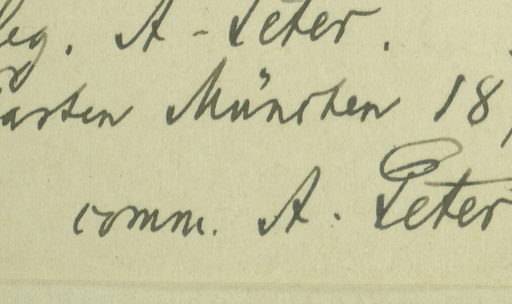 leg. A. Peter.
arten München 18
comm. A. Peter